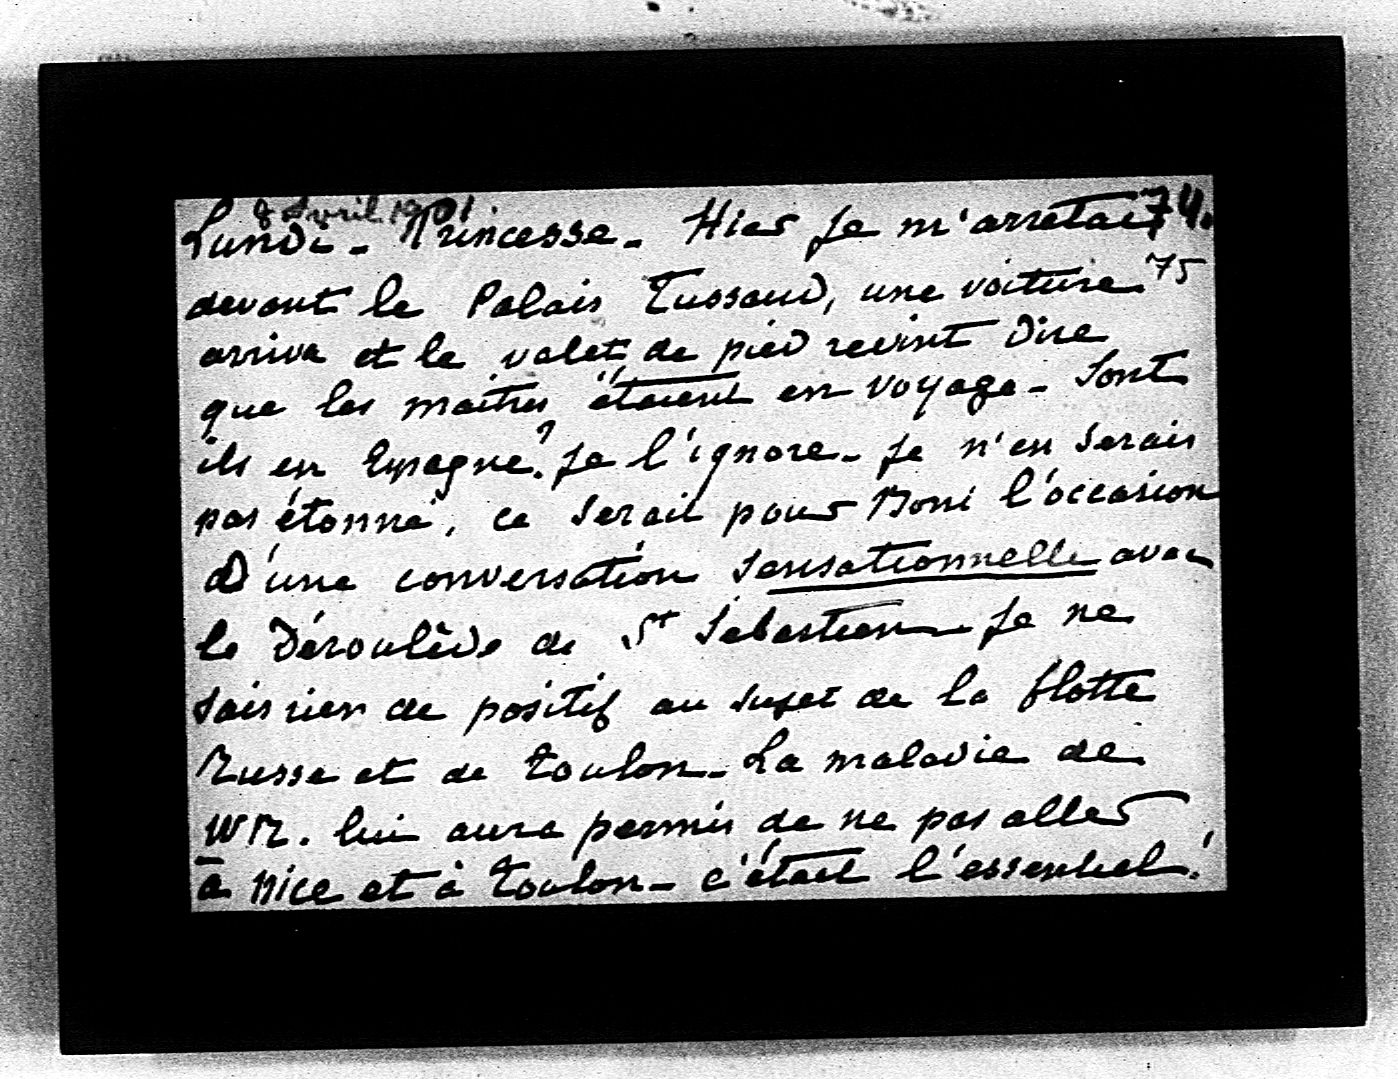 8 Avril 1901. 74.
Lundi - Princesse - Hier je m'arretais
devant le Palais Tussaud, une voiture 75
arriva et le valet de pied revint dire
que les maitres étaient en voyage - Sont
ils en Espagne? Je l'ignore - Je n'en serais
pas étonné, ce serait pour Boni l'occasion
d'une conversation sensationnelle avec
le Déroulède de St Sebastien - Je ne
sais rien de positif au sujet de la flotte
Russe et de Toulon - La maladie de
WR. lui aura permis de ne pas aller
à Nice et à Toulon - c'était l'essentiel!